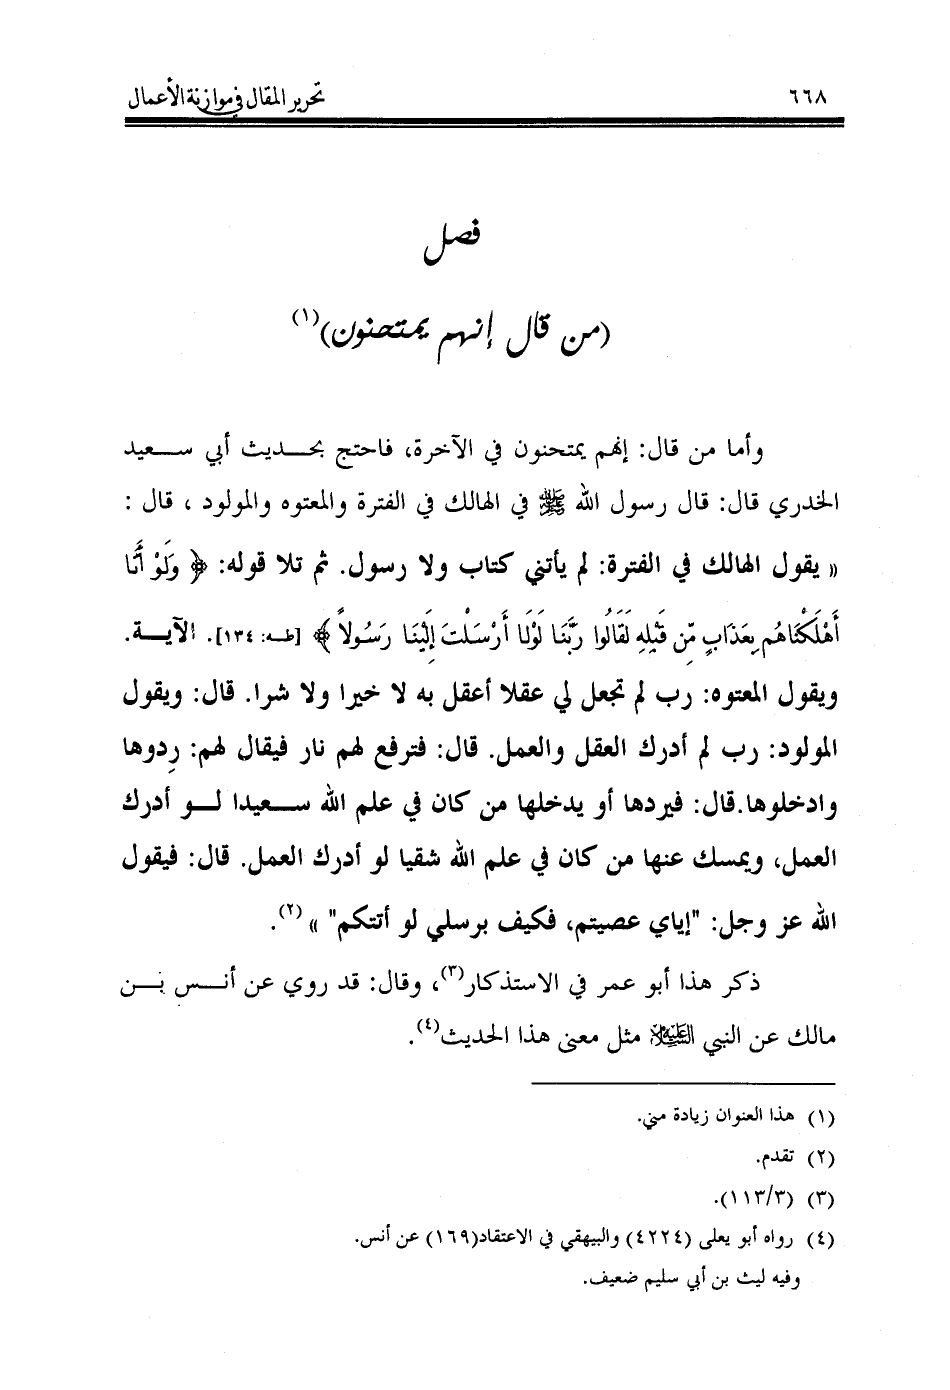 ٦٦٨ تحرير المقال في موازنة الأعمال
فصل
(من قال إنهم يمتحنون)(١)
وأما من قال: إنهم يمتحنون في الآخرة، فاحتج بحديث أبي سعيد
الخدري قال: قال رسول الله ﷺ في الهالك في الفترة والمعتوه والمولود ، قال :
« يقول الهالك في الفترة: لم يأتني كتاب ولا رسول. ثم تلا قوله: ﴿ وَلَوْ أَنَّا
أَهْلَكْنَاهُم بِعَذَابٍ مِّن قَبْلِهِ لَقَالُوا رَبَّنَا لَوْلَا أَرْسَلْتَ إِلَيْنَا رَسُولاً ﴾ [طه: ١٣٤]. الآية.
ويقول المعتوه: رب لم تجعل لي عقلا أعقل به لا خيرا ولا شرا. قال: ويقول
المولود: رب لم أدرك العقل والعمل. قال: فترفع لهم نار فيقال لهم: رِدوها
وادخلوها.قال: فيردها أو يدخلها من كان في علم الله سعيدا لو أدرك
العمل، ويمسك عنها من كان في علم الله شقيا لو أدرك العمل. قال: فيقول
الله عز وجل: "إياي عصيتم، فكيف برسلي لو أتتكم" »(٢).
ذكر هذا أبو عمر في الاستذكار(٣)، وقال: قد روي عن أنس بن
مالك عن النبي الكليلا مثل معنى هذا الحديث(٤).
(١) هذا العنوان زيادة مني.
(٢) تقدم.
(٣) (١١٣/٣).
(٤) رواه أبو يعلى (٤٢٢٤) والبيهقي في الاعتقاد(١٦٩) عن أنس.
وفيه ليث بن أبي سليم ضعيف.